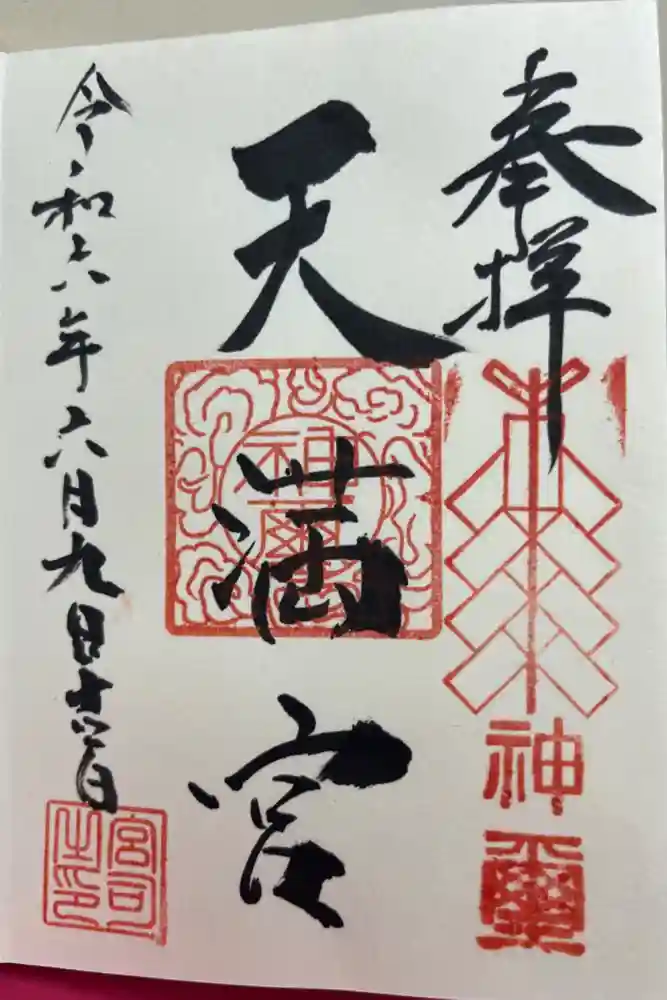 奉拝
神璽
天満宮
神璽
令和六年六月九日
宮司
之印